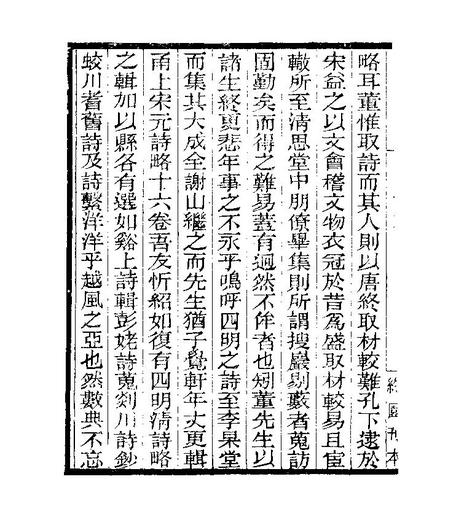 略耳董惟取詩而其人則以唐終取材較難孔下逮於
宋益之以文會稽文物衣冠於昔爲盛取材較易且宦
轍所至清思堂中朋僚畢集則所謂搜巖剔藪者蒐訪
固勤矣而得之難易蓋有迥然不侔者也矧董先生以
諸生終更悲年事之不永乎嗚呼四明之詩至李杲堂
而集其大成全謝山繼之而先生猶子覺軒年丈更輯
甬上宋元詩略十六卷吾友忻紹如復有四明清詩略
之輯加以縣各有選如谿上詩輯彭姥詩蒐剡川詩鈔
蛟川耆舊詩及詩繫洋洋乎越風之亞也然數典不忘